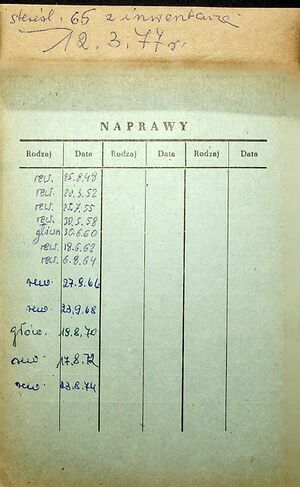 skreśl. 65 z inwentarza
12.3.77 r.
NAPRAWY
Rodzaj Data Rodzaj Data Rodzaj Data
rew. 25.8.48
rew. 20.3.52
rew. 25.7.55
rew. 30.5.58
główn 30.6.60
rew. 18.6.62
rew. 6.8.64
rew 27.9.66
rew. 23.9.68
głów. 19.8.70
rew 17.8.72
rew. 23.8.74